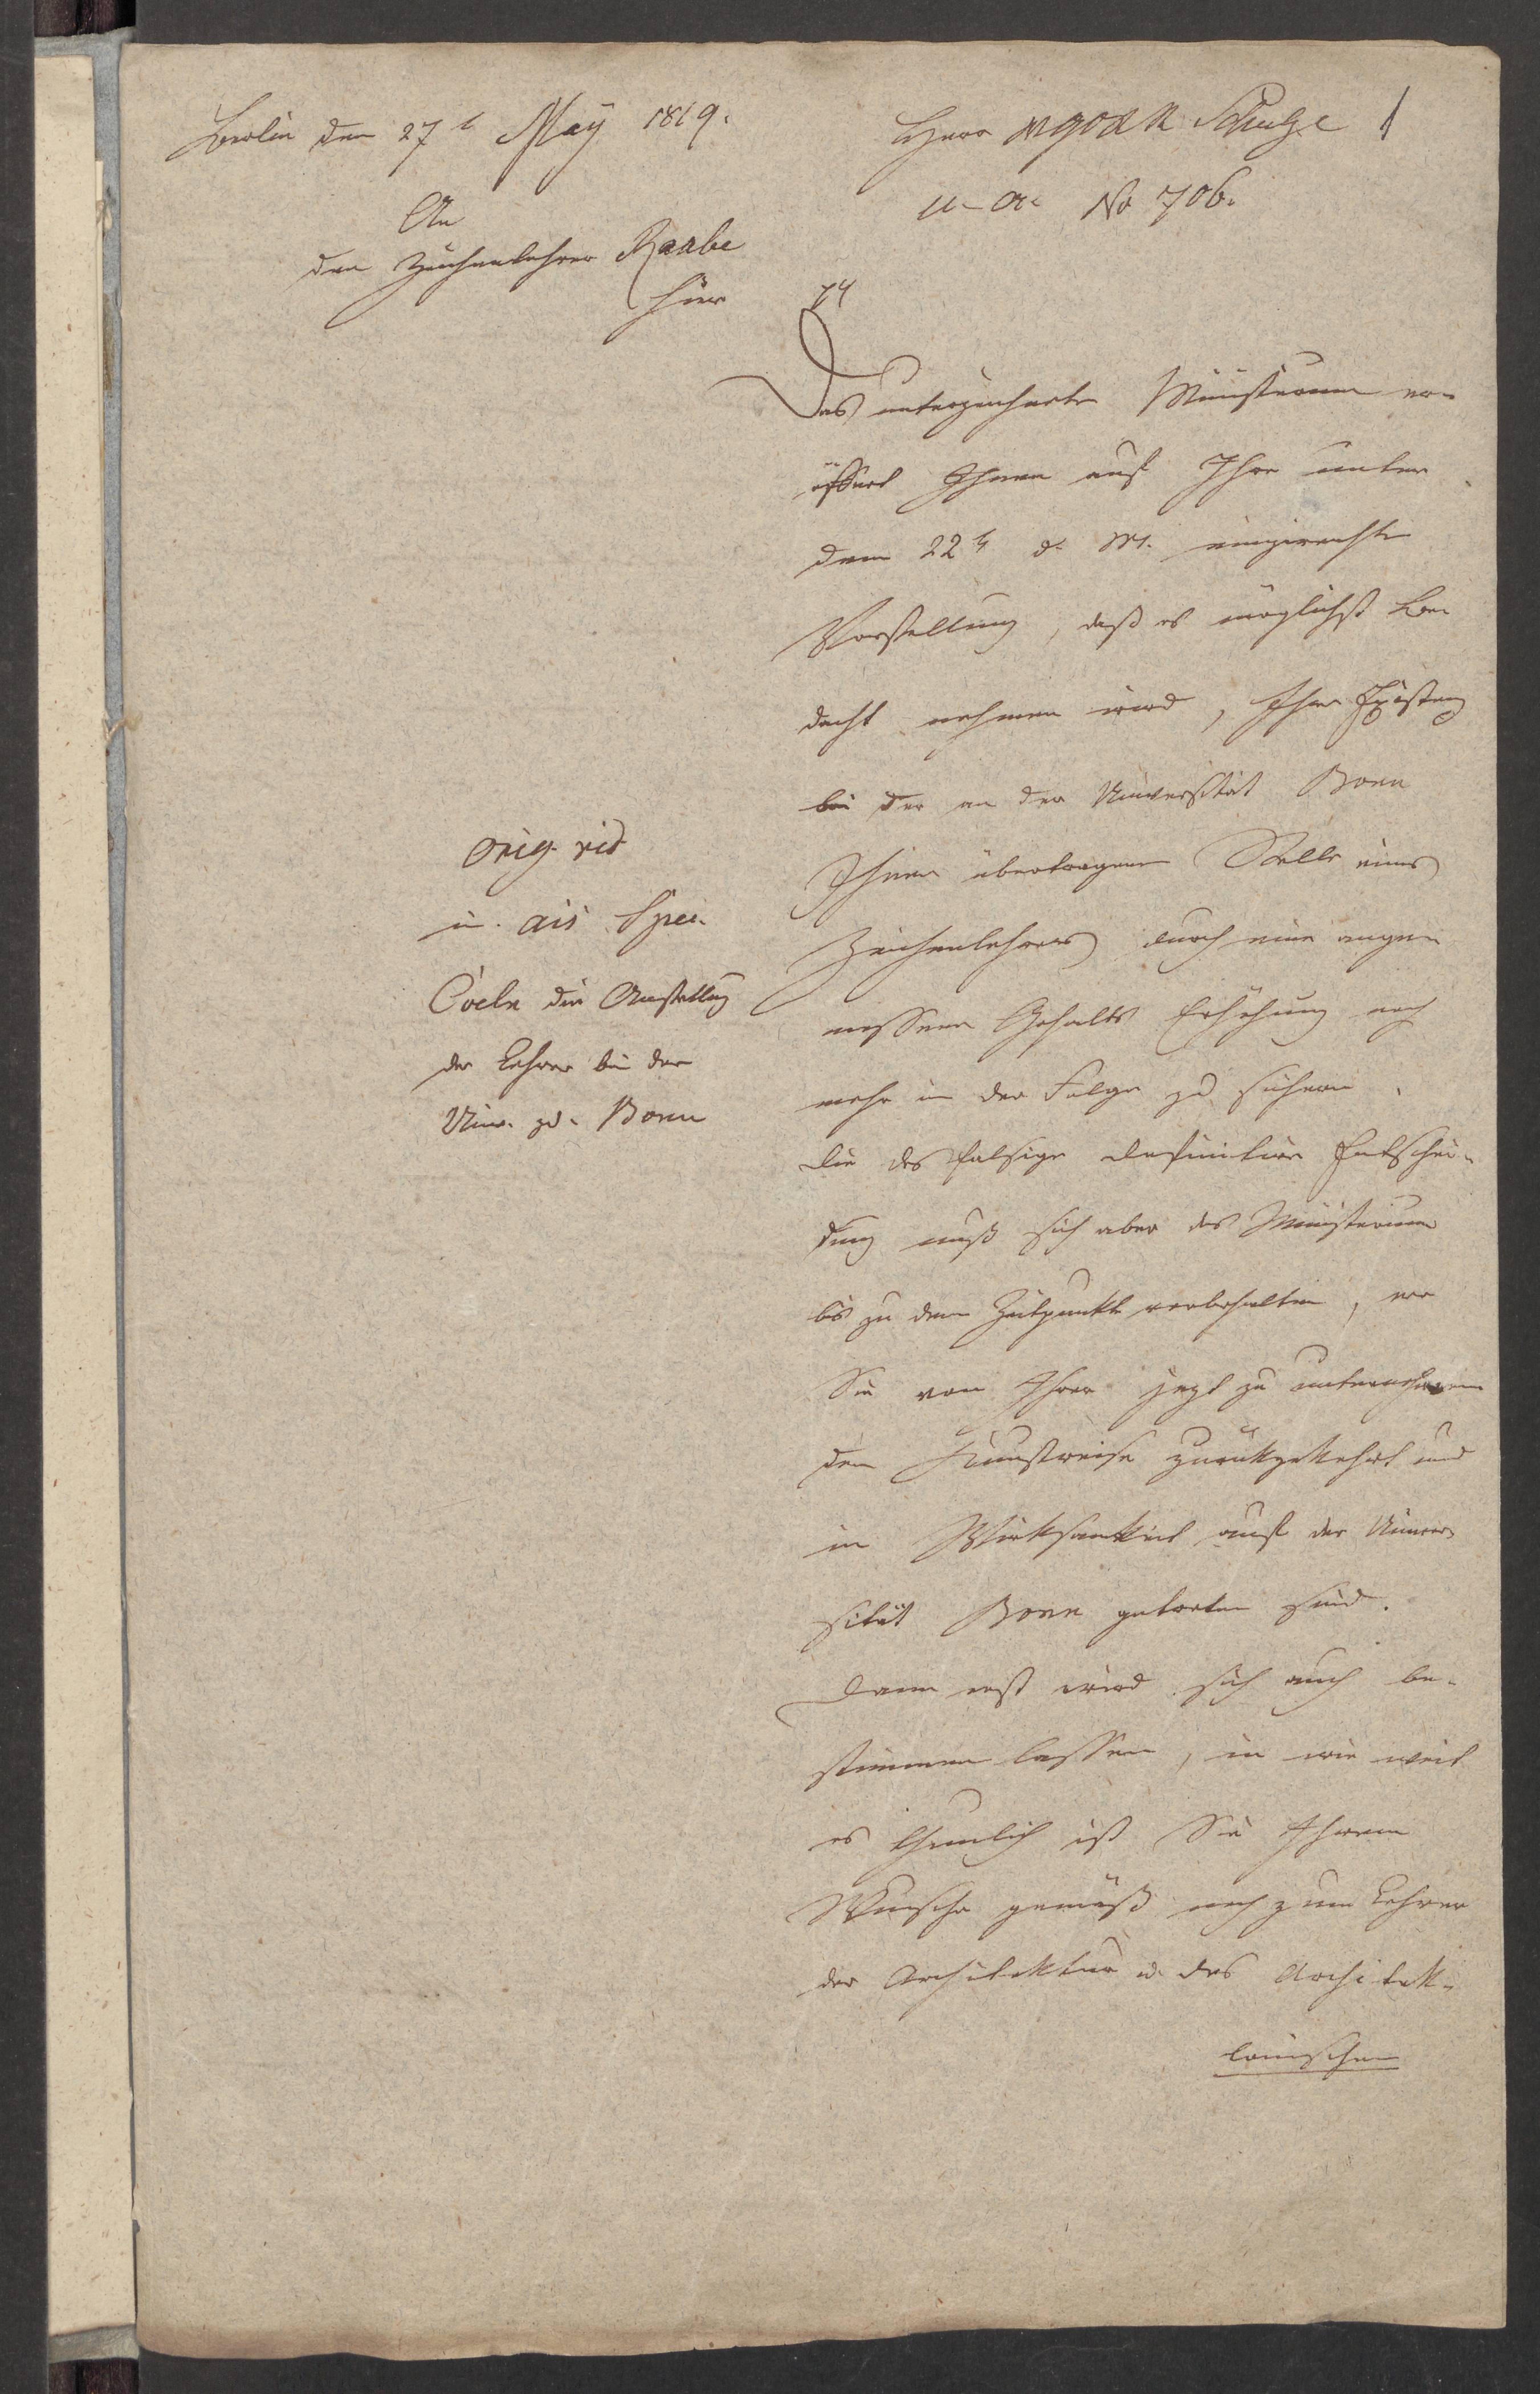 Berlin den 27t May 1819.
An
den Zeichenlehrer Raabe
hier
Herr Schulze 1
No 706.
Das unterzeichnete Ministerium er-
öffnet Ihnen auf Ihre unter
dem 22t d. M. eingereichte
Vorstellung, daß es möglichst Be-
dacht nehmen wird, Ihre Existenz
bei der an der Universität Bonn
Ihnen übertragenen Stelle eines
Zeichenlehrers durch eine ange-
messene Gehalts Erhöhung noch
mehr in der Folge zu sichern.
Die desfalsige definitive Entschei-
dung muß sich aber das Ministerium
bis zu dem Zeitpunkte vorbehalten, wo
Sie von Ihrer jezt zu unternehmen
den Kunstreise zurükgekehrt und
in Wirksamkeit auf der Univer-
sität Bonn getreten sind.
Dann erst wird sich auch be-
stimmen lassen, in wie weit
es thunlich ist Sie Ihrem
Wunsche gemäß noch zum Lehrer
der Architektur u. des Architek-
tonischen
Orig. rid
die Anstellung
der Lehrer bei der
Univ. zu Bonn